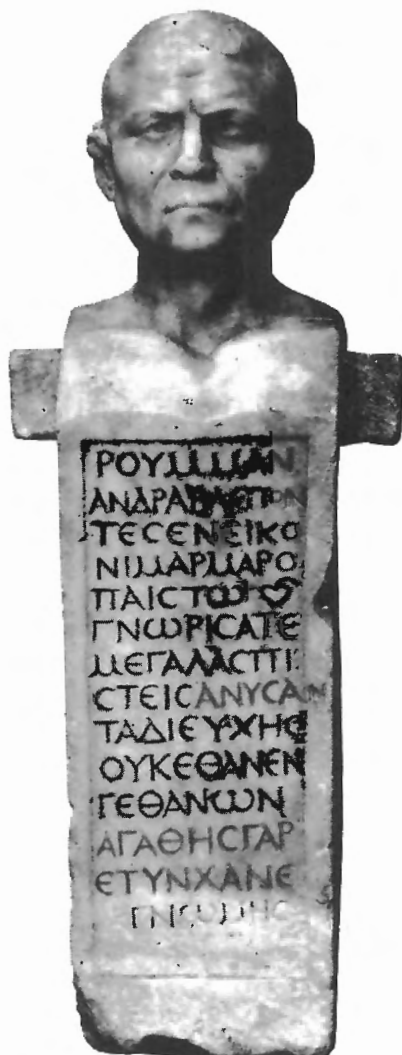 ΡΟΥΜΜΑΝ
ΑΝΔΡΑΒΛΕΠΟΝ
ΤΕϹΕΝΕΙΚΟ
ΝΙΜΑΡΜΑΡΟ
ΠΑΙϹΤΩ
ΓΝΩΡΙϹΑΤΕ
ΜΕΓΑΛΑϹΠΙ
ϹΤΕΙϹΑΝΥϹΑΝ
ΤΑΔΙΕΥΧΗϹ
ΟΥΚΕΘΑΝΕΝ
ΓΕΘΑΝΩΝ
ΑΓΑΘΗϹΓΑΡ
ΕΤΥΝΧΑΝΕ
ΓΝΩΜΗϹ